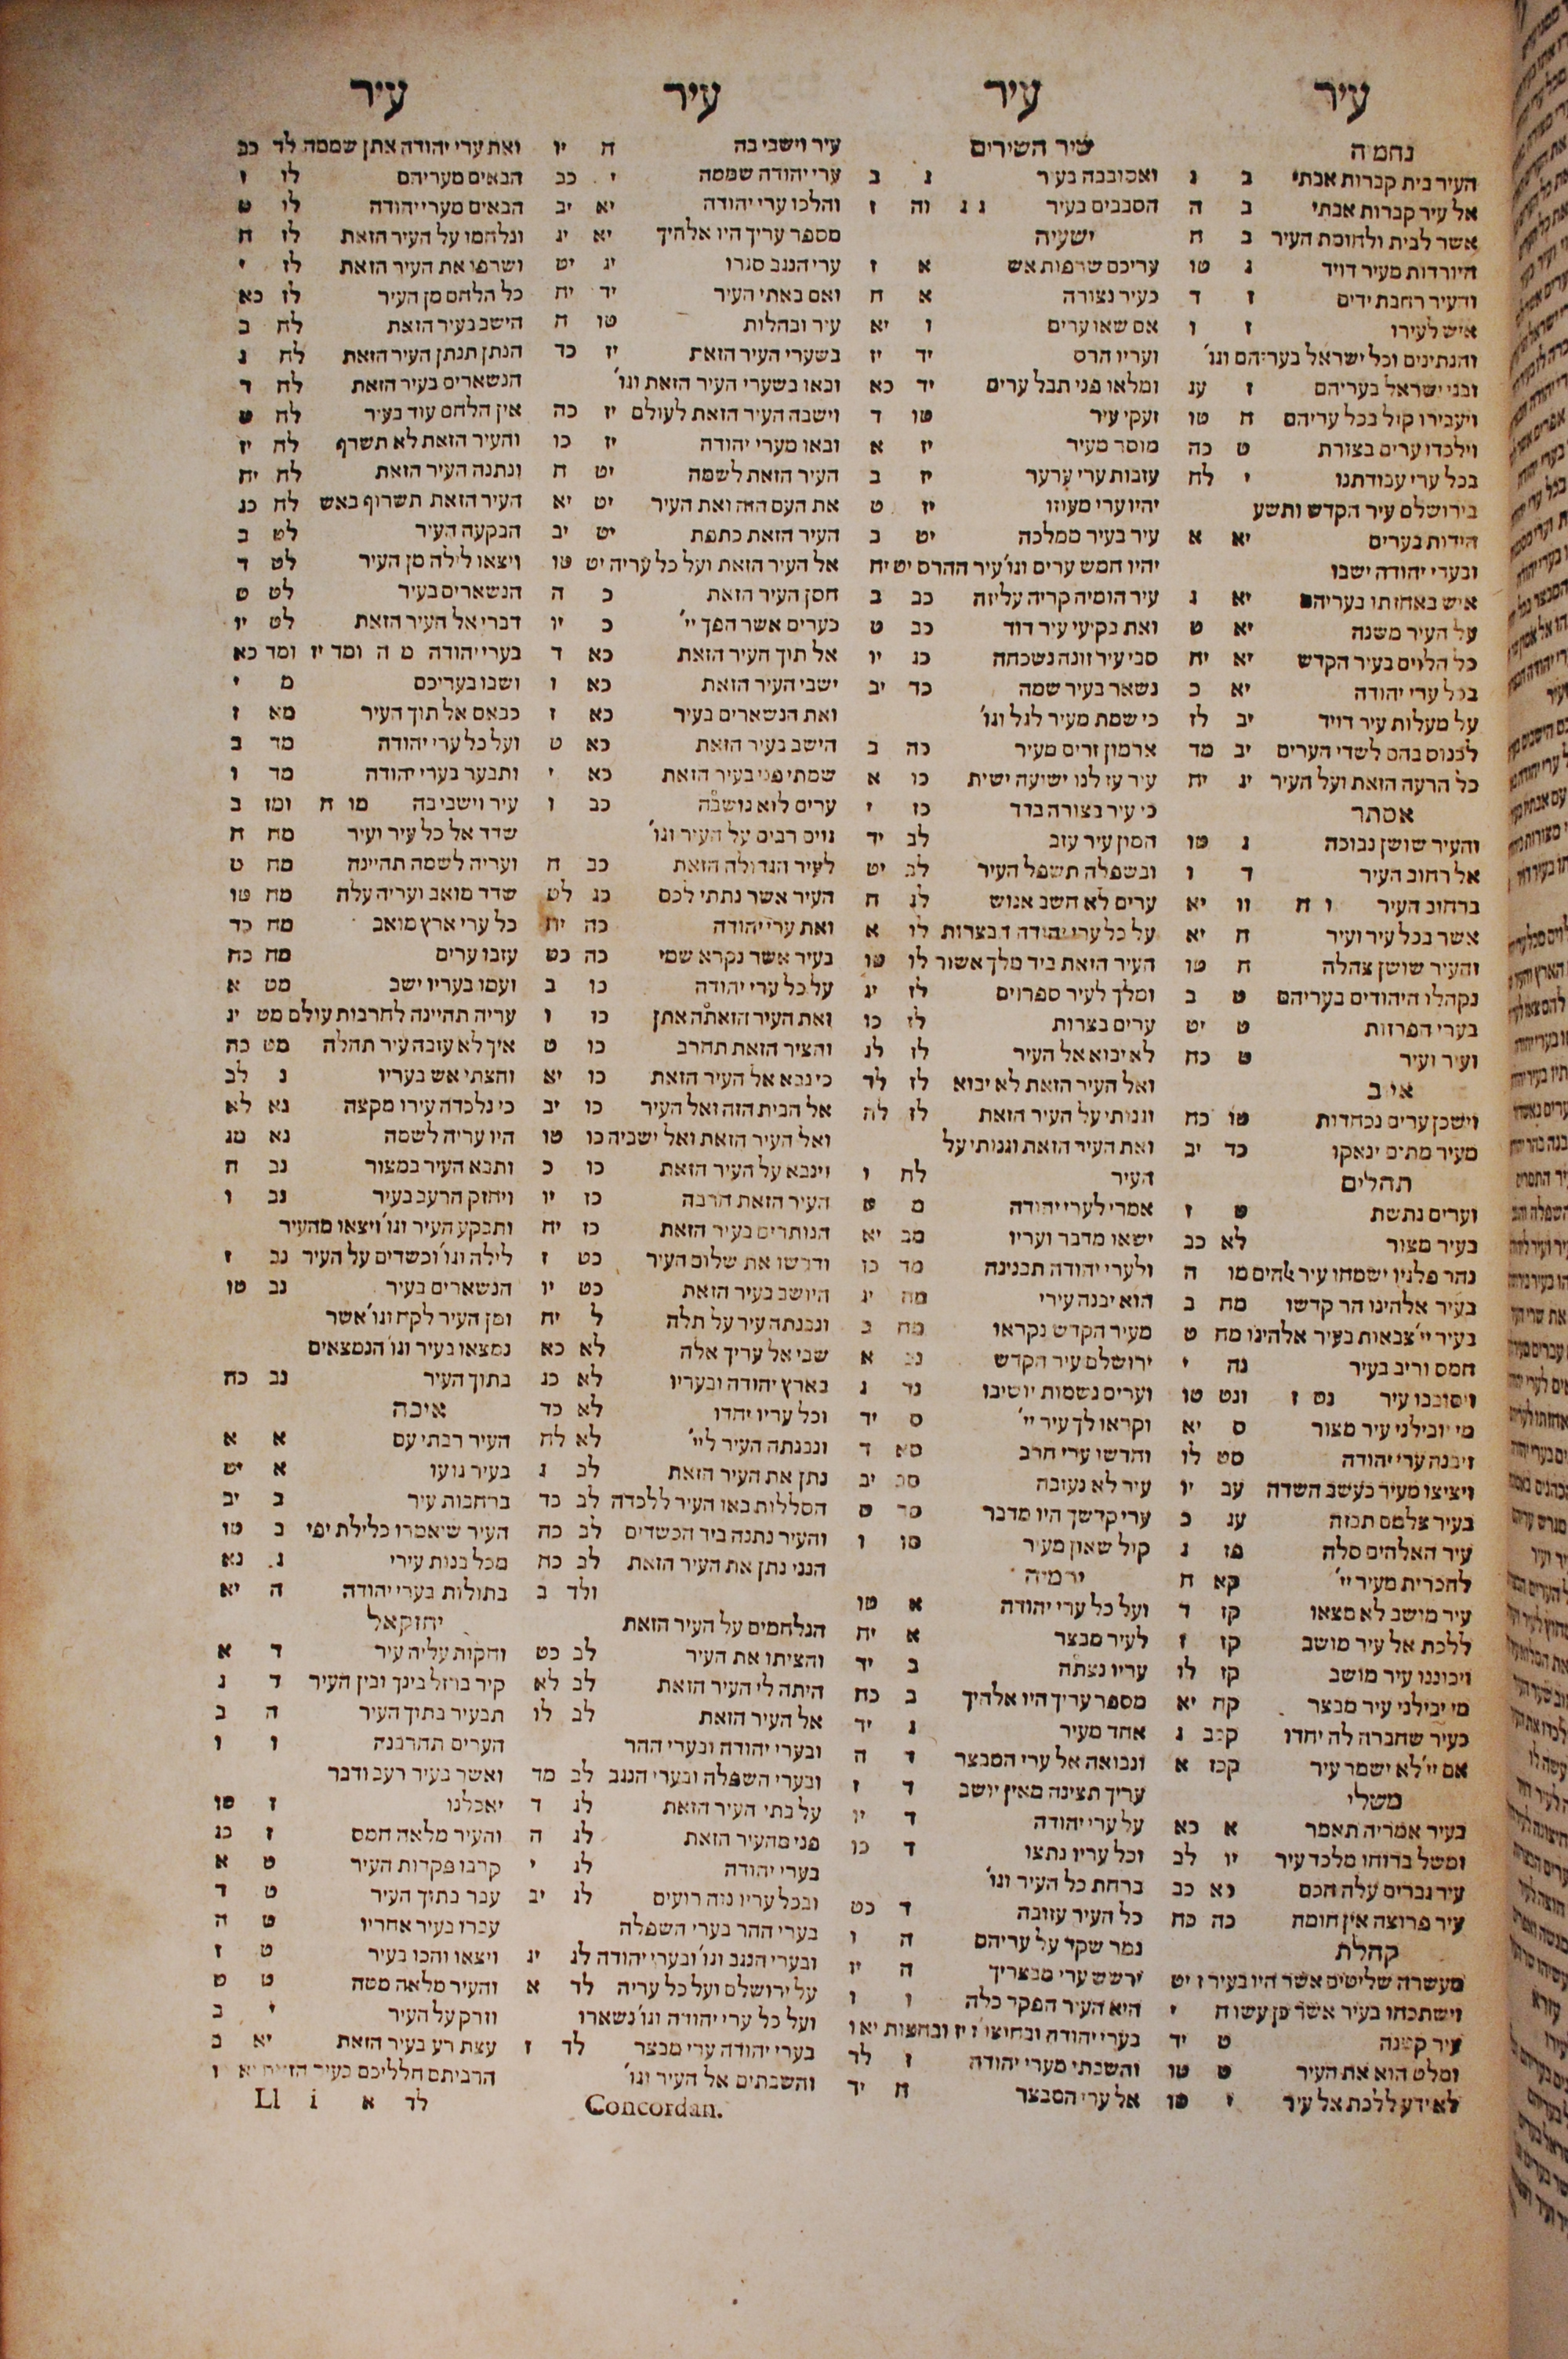 עיר
נחמיה
העיר בית קברות אבתי ב ג
אל עיר קברות אבתי ב ה
אשר לבית ולחומת העיר ב ח
היורדות מעיר דויד ג טו
והעיר רחבת ידים ז ד
איש לעירו ז ו
והנתינים וכל ישראל בעריהם וגו'
ובני ישראל בעריהם ז עג
ויעבירו קול בכל עריהם ח טו
וילכדו ערים בצורת ט כה
בכל ערי עבודתנו י לח
בירושלם עיר הקדש ותשע
הידות בערים יא א
ובערי יהודה ישבו
איש באחזתו בעריהם יא ג
על העיר משנה יא ט
כל הלוים בעיר הקדש יא יח
בכל ערי יהודה יא כ
על מעלות עיר דויד יב לז
לכנוס בהם לשדי הערים יב מד
כל הרעה הזאת ועל העיר יג יח
אסתר
והעיר שושן נבוכה ג טו
אל רחוב העיר ד ו
ברחוב העיר ו ח וו יא
אשר בכל עיר ועיר ח יא
והעיר שושן צהלה ח טו
נקהלו היהודים בעריהם ט ב
בערי הפרזות ט יט
ועיר ועיר ט כח
איוב
וישכן ערים נכחדות טו כח
מעיר מתים ינאקו כד יב
תהלים
וערים נתשת ט ז
בעיר מצור לא כב
נהר פלגיו ישמחו עיר אלהים מו ה
בעיר אלהינו הר קדשו מח ב
בעיר יי' צבאות בעיר אלהינו מח ט
חמס וריב בעיר נה י
ויסובבו עיר נט ז ונט טו
מי יובילני עיר מצור ס יא
ויבנה ערי יהודה סט לו
ויציצו מעיר כעשב השדה עב יו
בעיר צלמם תבזה עג כ
עיר האלהים סלה פז ג
להכרית מעיר יי' קא ח
עיר מושב לא מצאו קז ד
ללכת אל עיר מושב קז ז
ויכוננו עיר מושב קז לו
מי יבילני עיר מבצר קח יא
כעיר שחברה לה יחדו קכב ג
אם יי' לא ישמר עיר קכז א
משלי
בעיר אמריה תאמר א כא
ומשל ברוחו מלכד עיר יו לב
עיר גברים עלה חכם כא כב
עיר פרוצה אין חומה כה כח
קהלת
מעשרה שליטים אשר היו בעיר ז יט
וישתכחו בעיר אשר כן עשו ח י
עיר קטנה ט יד
ומלט הוא את העיר ט טו
לא ידע ללכת אל עיר י טו
עיר
שיר השירים
ואסובבה בעיר ג ב
הסבבים בעיר ג ג וה ז
ישעיה
עריכם שרפות אש א ז
כעיר נצורה א ח
אם שאו ערים ו יא
ועריו הרס יד יז
ומלאו פני תבל ערים יד כא
זעקי עיר טו ד
מוסר מעיר יז א
עזבות ערי ערער יז ב
יהיו ערי מעוזו יז ט
עיר בעיר ממלכה יט ב
יהיו חמש ערים וגו' עיר ההרס יט יח
עיר הומיה קריה עליזה כב ב
ואת בקיעי עיר דוד כב ט
סבי עיר זונה נשכחה כג יו
נשאר בעיר שמה כד יב
כי שמת מעיר לגל וגו'
ארמון זרים מעיר כה ב
עיר עז לנו ישועה ישית כו א
כי עיר בצורה בדד כז י
המון עיר עזב לב יד
ובשפלה תשפל העיר לב יט
ערים לא חשב אנוש לג ח
על כל ערי יהודה הבצרות לו א
העיר הזאת ביד מלך אשור לו טו
ומלך לעיר ספרוים לז יג
ערים בצרות לז כו
לא יבוא אל העיר לז לג
ואל העיר הזאת לא יבוא לז לד
וגנותי על העיר הזאת לז לה
ואת העיר הזאת וגנותי על
העיר לח ו
אמרי לערי יהודה מ ט
ישאו מדבר ועריו מב יא
ולערי יהודה תבנינה מד כו
הוא יבנה עירי מה יג
מעיר הקדש נקראו מח ב
ירושלם עיר הקדש נב א
וערים נשמות יושיבו נד ג
וקראו לך עיר יי' ס יד
וחדשו ערי חרב סא ד
עיר לא נעזבה סב יב
ערי קדשך היו מדבר סד ט
קול שאון מעיר סו ו
ירמיה
ועל כל ערי יהודה א טו
לעיר מבצר א יח
עריו נצתה ב יד
מספר עריך היו אלהיך ב כח
אחד מעיר ג יד
ונבואה אל ערי המבצר ד ה
עריך תצינה מאין יושב ד ז
על ערי יהודה ד יו
וכל עריו נתצו ד כו
ברחת כל העיר וגו'
כל העיר עזובה ד כט
נמר שקד על עריהם ה ו
ירשש ערי מבצריך ה יז
היא העיר הפקר כלה ו ו
בערי יהודה ובחוצו' ז יז ובחצות יא ו
והשבתי מערי יהודה ז לד
אל ערי המבצר ח יד
עיר
עיר וישבי בה ח יו
ערי יהודה שממה י כב
והלכו ערי יהודה יא יב
מספר עריך היו אלהיך יא יג
ערי הנגב סגרו יג יט
ואם באתי העיר יד יח
עיר ובהלות טו ח
בשערי העיר הזאת יז כד
ובאו בשערי העיר הזאת וגו'
וישבה העיר הזאת לעולם יז כה
ובאו מערי יהודה יז כו
העיר הזאת לשמה יט ח
את העם הזה ואת העיר יט יא
העיר הזאת כתפת יט יב
אל העיר הזאת ועל כל עריה יט טו
חסן העיר הזאת כ ה
כערים אשר הפך יי' כ יו
אל תוך העיר הזאת כא ד
ישבי העיר הזאת כא ו
ואת הנשארים בעיר כא ז
הישב בעיר הזאת כא ט
שמתי פני בעיר הזאת כא י
ערים לוא נושבה כב ו
גוים רבים על העיר וגו'
לעיר הגדולה הזאת כב ח
העיר אשר נתתי לכם כג לט
ואת ערי יהודה כה יח
בעיר אשר נקרא שמי כה כט
על כל ערי יהודה כו ב
ואת העיר הזאתה אתן כו ו
והעיר הזאת תחרב כו ט
כי נבא אל העיר הזאת כו יא
אל הבית הזה ואל העיר כו יב
ואל העיר הזאת ואל ישביה כו טו
וינבא על העיר הזאת כו כ
העיר הזאת חרבה כז יו
הנותרים בעיר הזאת כז יח
ודרשו את שלום העיר כט ז
היושב בעיר הזאת כט יו
ונבנתה עיר על תלה ל יח
שבי אל עריך אלה לא כא
בארץ יהודה ובעריו לא כג
וכל עריו יחדו לא כד
ונבנתה העיר ליי' לא לח
נתן את העיר הזאת לב ג
הסללות באו העיר ללכדה לב כד
והעיר נתנה ביד הכשדים לב כה
הנני נתן את העיר הזאת לב כח
ולד ב
הנלחמים על העיר הזאת
והציתו את העיר לב כט
היתה לי העיר הזאת לב לא
אל העיר הזאת לב לו
ובערי יהודה ובערי ההר
ובערי השפלה ובערי הנגב לב מד
על בתי העיר הזאת לג ד
פני מהעיר הזאת לג ה
בערי יהודה לג י
ובכל עריו נוה רועים לג יב
בערי ההר בערי השפלה
ובערי הנגב וגו' ובערי יהודה לג יג
על ירושלם ועל כל עריה לד א
ועל כל ערי יהודה וגו' נשארו
בערי יהודה ערי מבצר לד ז
והשבתים אל העיר וגו'
עיר
ואת ערי יהודה אתן שממה לד כב
הבאים מעריהם לו ו
הבאים מערי יהודה לו ט
ונלחמו על העיר הזאת לז ח
ושרפו את העיר הזאת לז י
כל הלחם מן העיר לז כא
הישב בעיר הזאת לח ב
הנתן תנתן העיר הזאת לח ג
הנשארים בעיר הזאת לח ד
אין הלחם עוד בעיר לח ט
והעיר הזאת לא תשרף לח יז
ונתנה העיר הזאת לח יח
העיר הזאת תשרוף באש לח כג
הבקעה העיר לט ב
ויצאו לילה מן העיר לט ד
הנשארים בעיר לט ט
דברי אל העיר הזאת לט יו
בערי יהודה מ ה ומד יז ומד כא
ושבו בעריכם מ י
כבאם אל תוך העיר מא ז
ועל כל ערי יהודה מד ב
ותבער בערי יהודה מד ו
עיר וישבי בה מו ח ומז ב
שדד אל כל עיר ועיר מח ח
ועריה לשמה תהיינה מח ט
שדד מואב ועריה עלה מח טו
כל ערי ארץ מואב מח כד
עזבו ערים מח כח
ועמו בעריו ישב מט א
עריה תהיינה לחרבות עולם מט יג
איך לא עזבה עיר תהלה מט כה
והצתי אש בעריו נ לב
כי נלכדה עירו מקצה נא לא
היו עריה לשמה נא מג
ותבא העיר במצור נב ה
ויחזק הרעב בעיר נב ו
ותבקע העיר וגו' ויצאו מהעיר
לילה וגו' וכשדים על העיר נב ז
הנשארים בעיר נב טו
ומן העיר לקח וגו' אשר
נמצאו בעיר וגו' הנמצאים
בתוך העיר נב כה
איכה
העיר רבתי עם א א
בעיר גועו א יט
ברחבות עיר ב יב
העיר שיאמרו כלילת יפי ב טו
מכל בנות עירי ג נא
בתולות בערי יהודה ה יא
יחזקאל
וחקות עליה עיר ד א
קיר ברזל בינך ובין העיר ד ג
תבעיר בתוך העיר ה ב
הערים תחרבנה ו ו
ואשר בעיר רעב ודבר
יאכלנו ז טו
והעיר מלאה חמס ז כג
קרבו פקדות העיר ט א
עבר בתוך העיר ט ד
עברו בעיר אחריו ט ה
ויצאו והכו בעיר ט ז
והעיר מלאה מטה ט ט
וזרק על העיר י ב
עצת רע בעיר הזאת יא ב
הרביתם חלליכם בעיר הזאת יא ו
Concordan. לד א Ll i